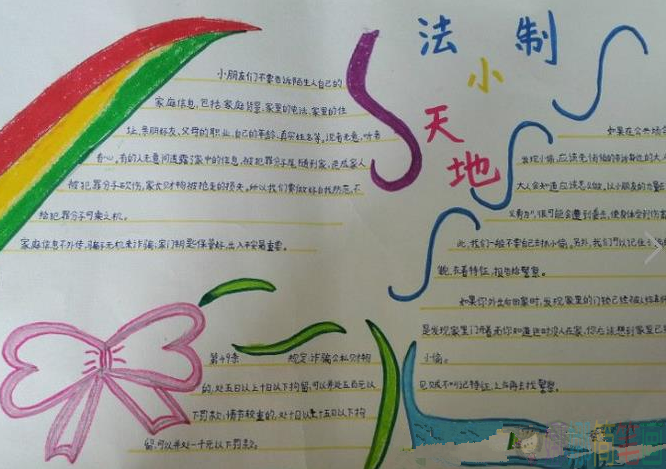 法制
小
天
地
小朋友们不要告诉陌生人自己的
家庭信息,包括家庭背景,家里的电话,家里的住
址,亲朋好友、父母的职业,自己的年龄,真实姓名等,说者无意,听者
有心,有的人无意间透露了家中的信息,被犯罪分子尾随到家,造成家人
被犯罪分子砍伤,家女财物被抢走的损失。所以我们要做好自我防范,不
给犯罪分子可乘之机。
家庭信息不外传,骗子无机来诈骗;家门钥匙保管好,出入平安最重要。
第49条 规定:诈骗公私财物
的,处五日以上十日以下拘留,可以并处五百元以
下罚款;情节较重的,处十日以上十五日以下拘
留,可以并处一千元以下罚款。
如果在公共场合
发现小偷,应该先悄悄的告诉身边的大人
大人会知道应该怎么做,以小朋友的力量
很可能会遭到歹徒,使身体受到伤害
此,我们一般不要自己去抓小偷。另外,我们可以记住小偷的
貌,衣着特征,报告给警察。
如果你外出后回家时,发现家里的门锁已经被人
是发现家里门开着而你知道这时没人在家,你应该想到家里已
小偷。
见贼不叫记特征,上去再去找警察。